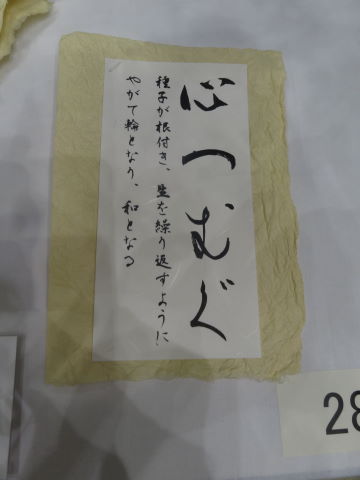 心つむぐ
種子が根付き、生を繰り返すように
やがて輪となり、和となる
28